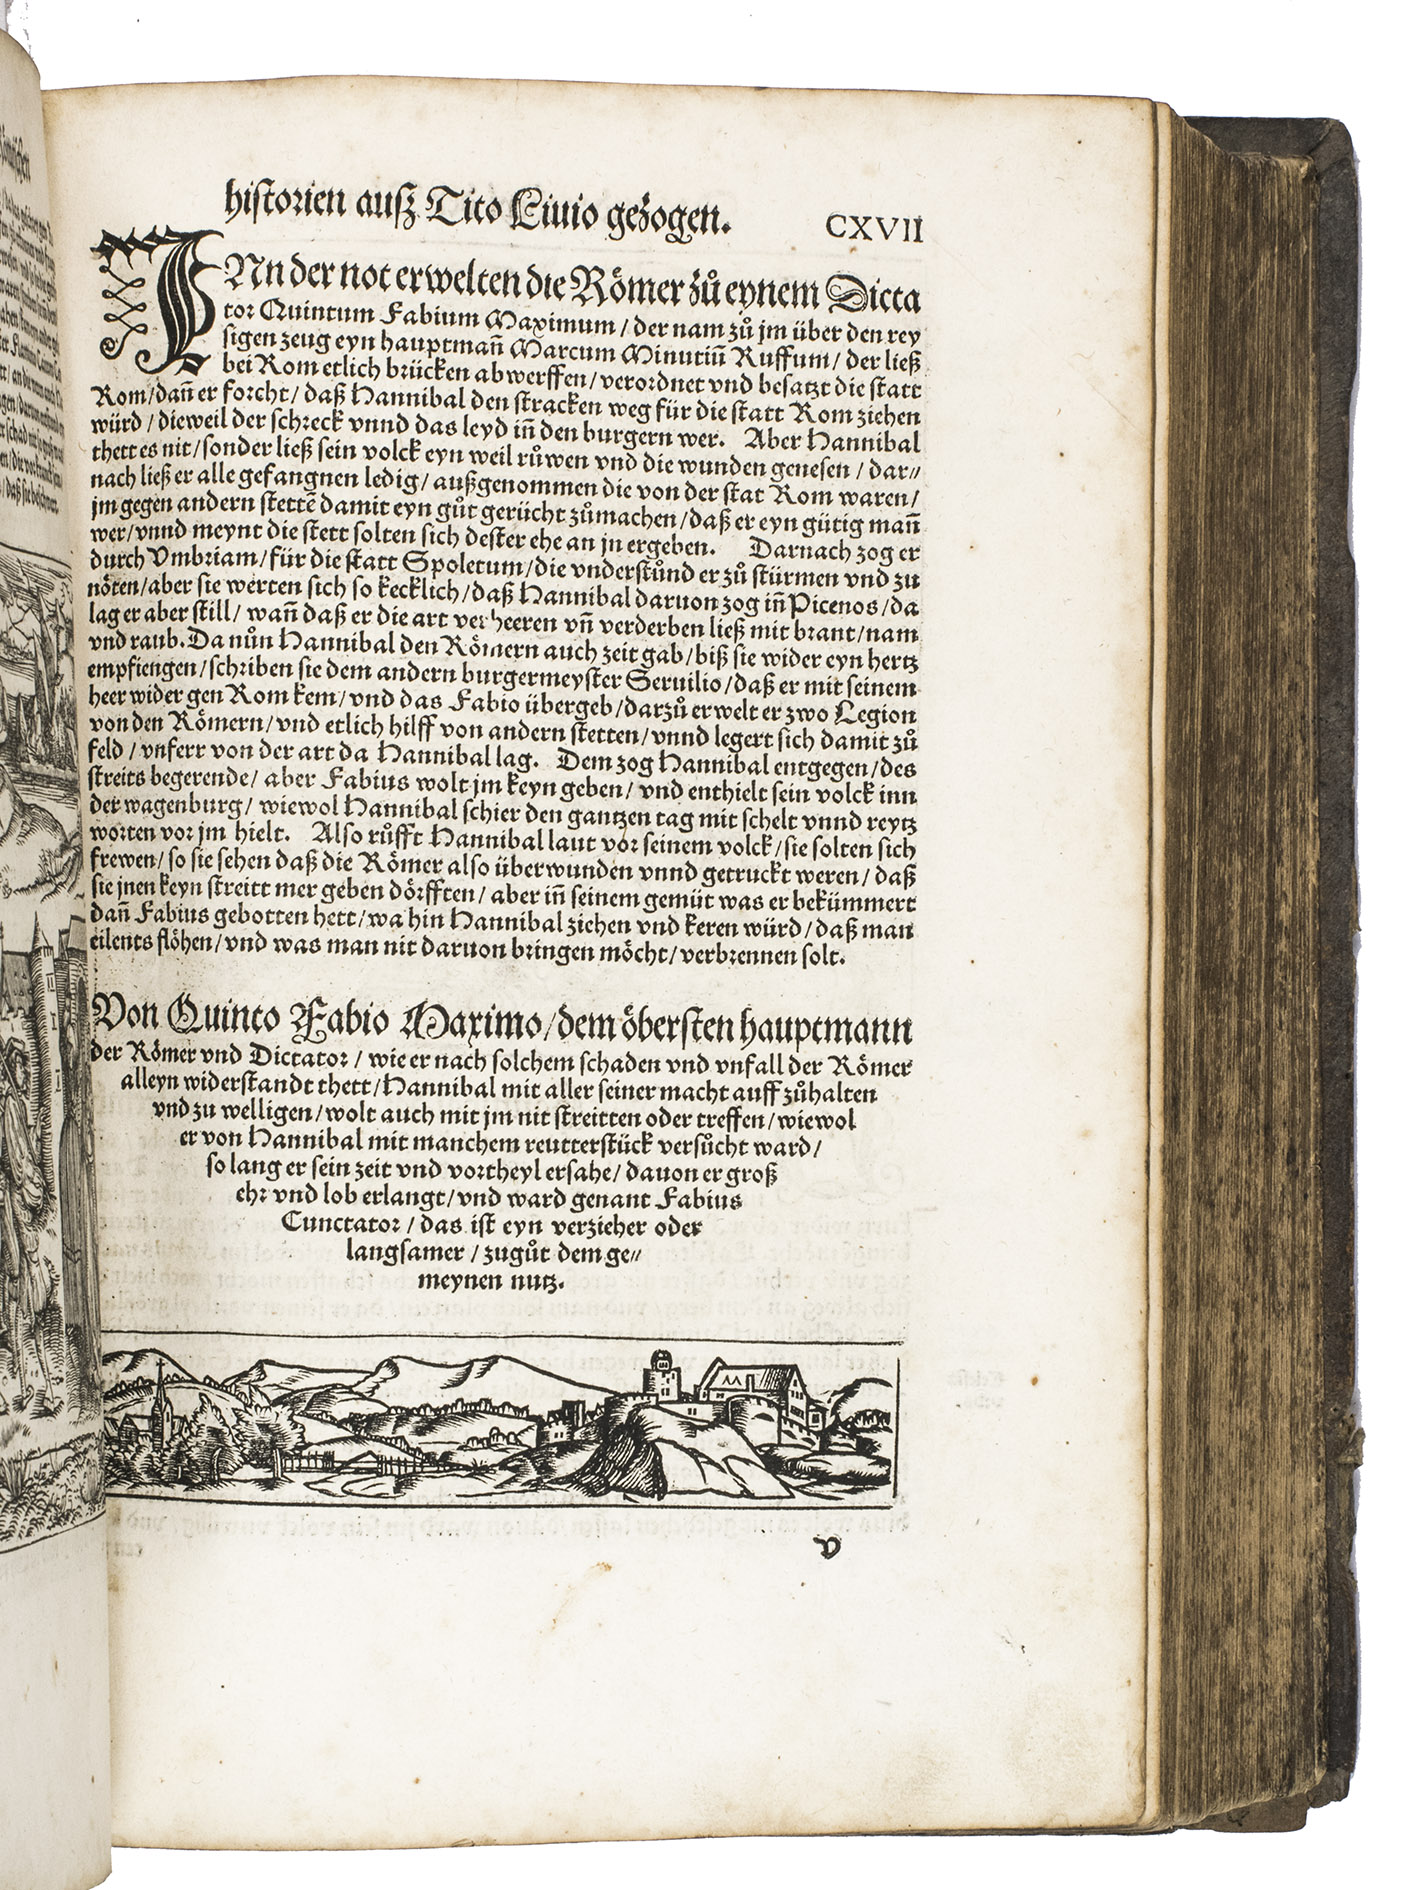 historien auſz Tito Liuio gezogen. CXVII
INn der not erwelten die Römer zů eynem Dicta
tor Quintum Fabium Maximum / der nam zů jm über den rey
ſigen zeug eyn hauptmañ Marcum Minutiũ Ruffum / der ließ
bei Rom etlich brücken abwerffen / verordnet vnd beſatzt die ſtatt
Rom / dañ er forcht / daß Hannibal den ſtracken weg für die ſtatt Rom ziehen
würd / dieweil der ſchreck vnnd das leyd iñ den burgern wer. Aber Hannibal
thett es nit / ſonder ließ ſein volck eyn weil růwen vnd die wunden geneſen / dar⸗
nach ließ er alle gefangnen ledig / außgenommen die von der ſtat Rom waren /
jm gegen andern ſtettẽ damit eyn gůt gerücht zůmachen / daß er eyn gütig mañ
wer / vnnd meynt die ſtett ſolten ſich deſter ehe an jn ergeben. Darnach zog er
durch Vmbriam / für die ſtatt Spoletum / die vnderſtůnd er zů ſtürmen vnd zu
nöten / aber ſie werten ſich ſo kecklich / daß Hannibal daruon zog iñ Picenos / da
lag er aber ſtill / wañ daß er die art verheeren vñ verderben ließ mit brant / nam
vnd raub. Da nůn Hannibal den Römern auch zeit gab / biß ſie wider eyn hertz
empfiengen / ſchriben ſie dem andern burgermeyſter Seruilio / daß er mit ſeinem
heer wider gen Rom kem / vnd das Fabio übergeb / darzů erwelt er zwo Legion
von den Römern / vnd etlich hilff von andern ſtetten / vnnd legert ſich damit zů
feld / vnferr von der art da Hannibal lag. Dem zog Hannibal entgegen / des
ſtreits begerende / aber Fabius wolt jm keyn geben / vnd enthielt ſein volck inn
der wagenburg / wiewol Hannibal ſchier den gantzen tag mit ſchelt vnnd reytz
worten vor jm hielt. Alſo růfft Hannibal laut vor ſeinem volck / ſie ſolten ſich
frewen / ſo ſie ſehen daß die Römer alſo überwunden vnnd getruckt weren / daß
ſie jnen keyn ſtreitt mer geben dörfften / aber iñ ſeinem gemüt was er bekümmert
dañ Fabius gebotten hett / wa hin Hannibal ziehen vnd keren würd / daß man
eilents flöhen / vnd was man nit daruon bringen möcht / verbrennen ſolt.
Von Quinto Fabio Maximo / dem öberſten hauptmann
der Römer vnd Dictator / wie er nach ſolchem ſchaden vnd vnfall der Römer
alleyn widerſtandt thett / Hannibal mit aller ſeiner macht auff zůhalten
vnd zu welligen / wolt auch mit jm nit ſtreitten oder treffen / wiewol
er von Hannibal mit manchem reutterſtück verſůcht ward /
ſo lang er ſein zeit vnd vortheyl erſahe / dauon er groß
ehr vnd lob erlangt / vnd ward genant Fabius
Cunctator / das iſt eyn verzieher oder
langſamer / zugůt dem ge⸗
meynen nutz.